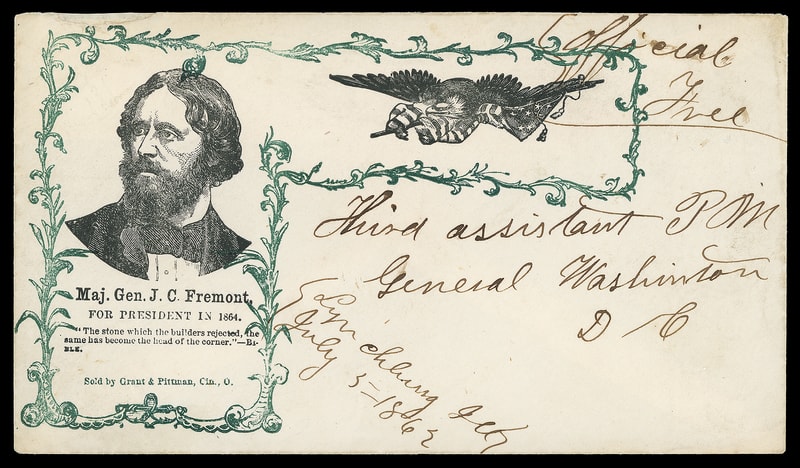 Official
Free
Maj. Gen. J. C. Fremont,
FOR PRESIDENT IN 1864.
"The stone which the builders rejected, the
same has become the head of the corner."—BI-
BLE.
Sold by Grant & Pittman, Cin., O.
Third assistant P M
General Washinton
D C
Lynchburg
July 5–1862